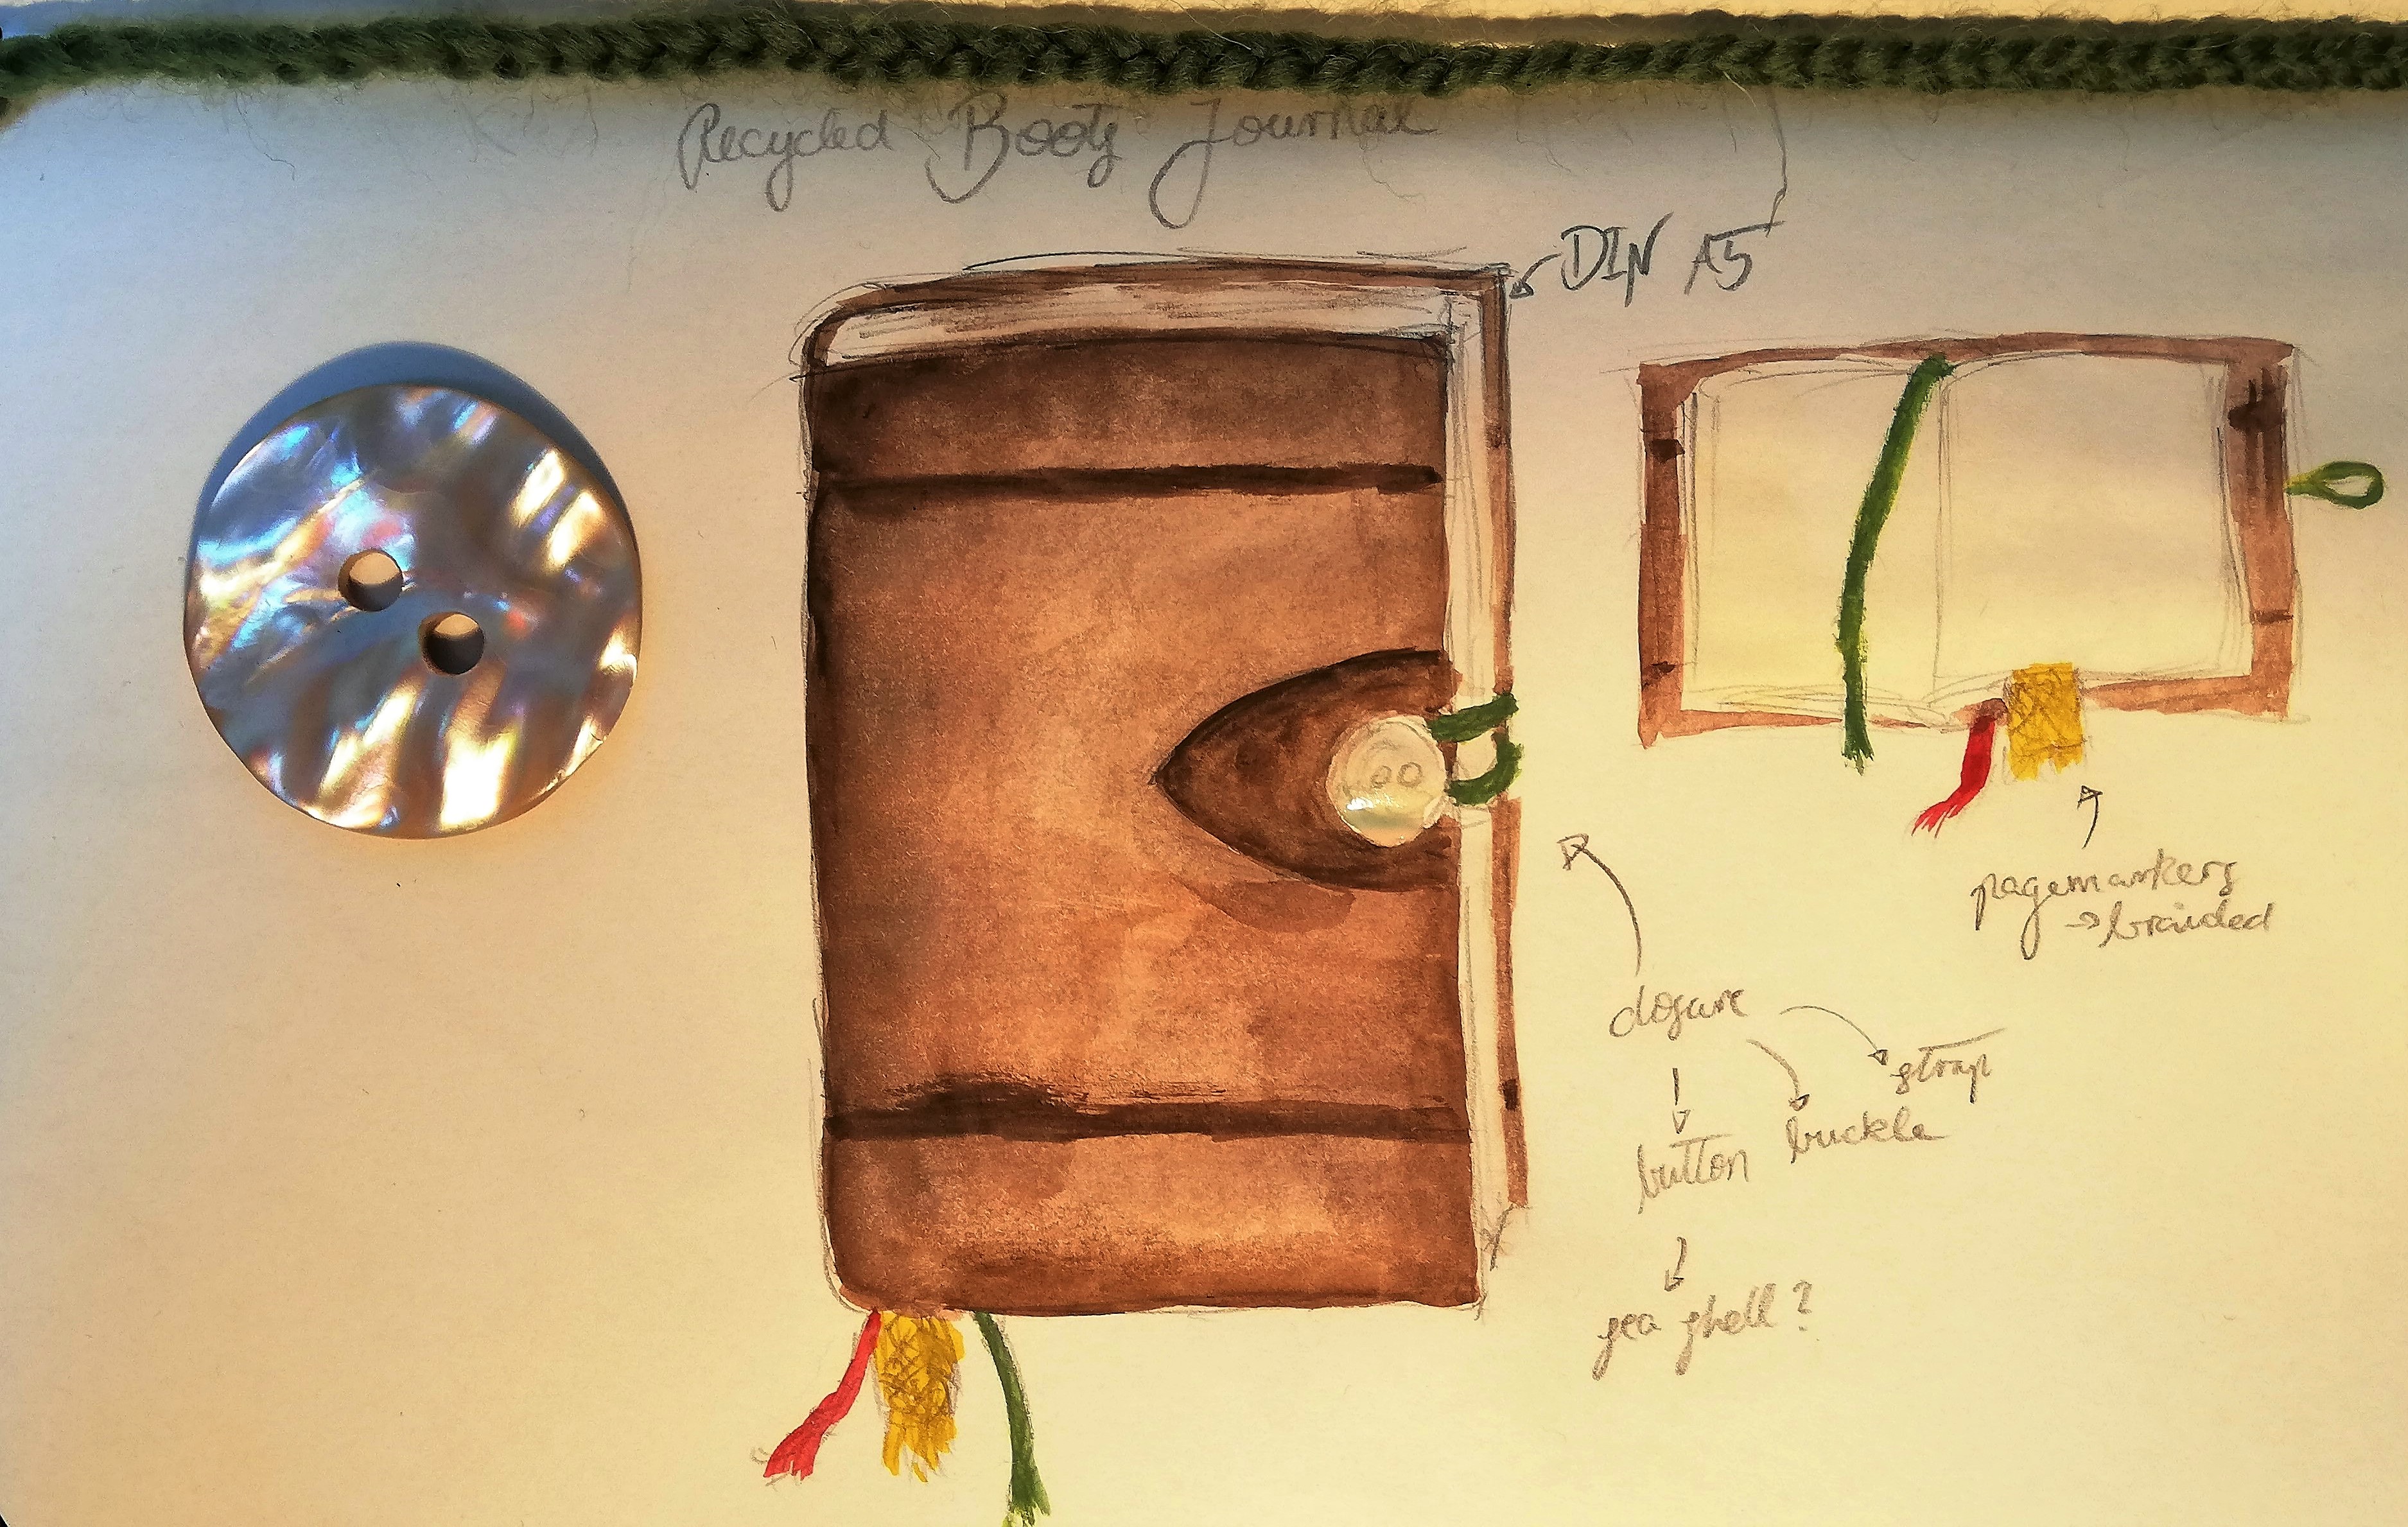 Recycled Booty Journal
DIN A5
pagemarkers
→ braided
closure
strap
buckle
button
sea shell?